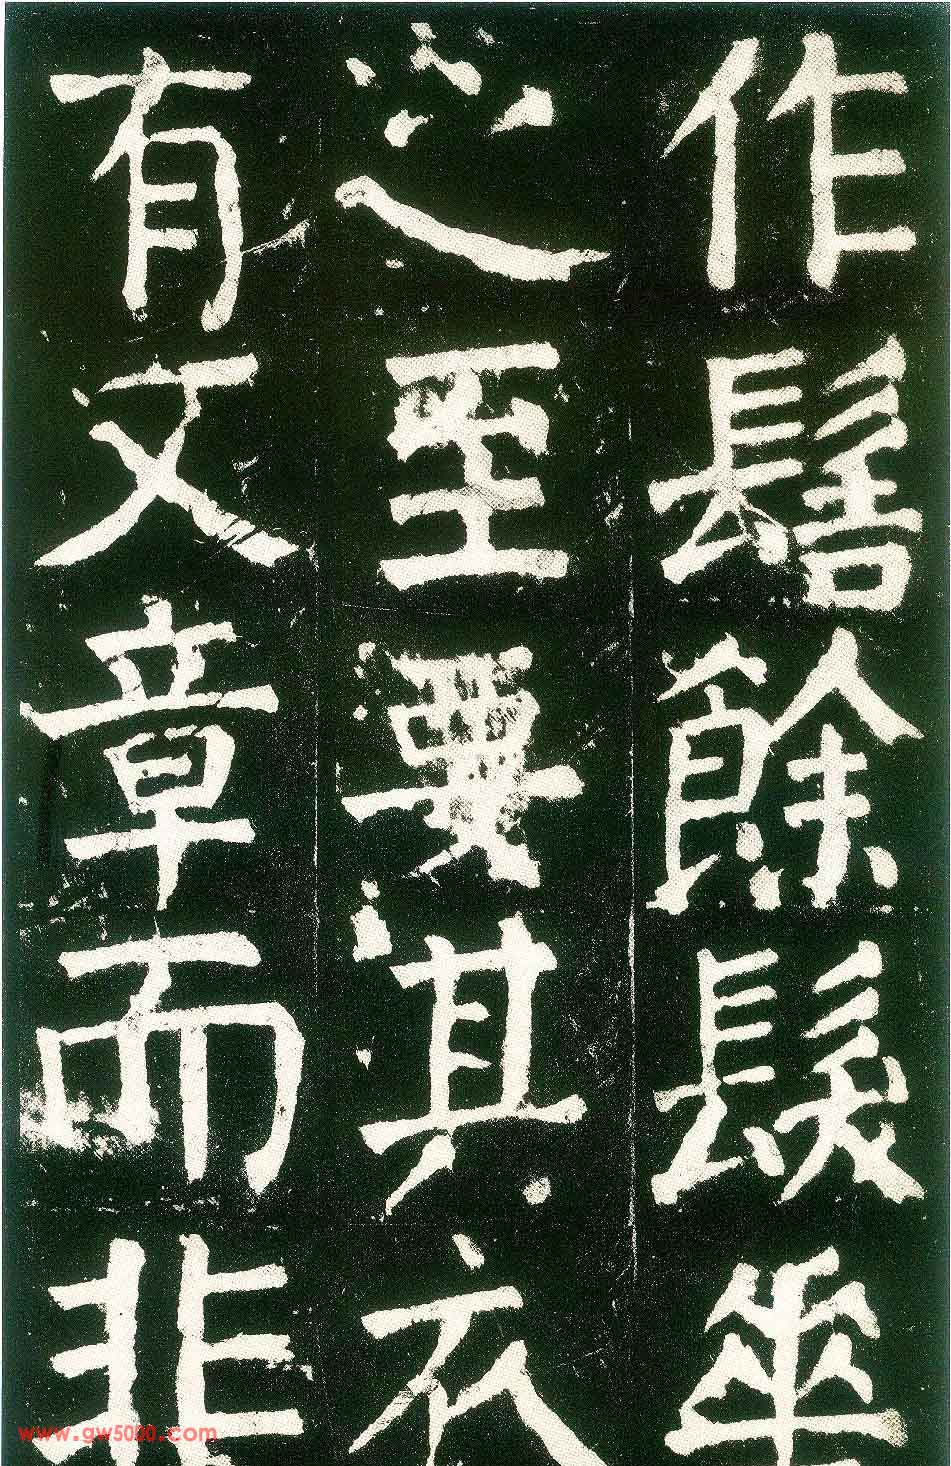 作髻餘髮垂
之至要其衣
有文章而非
www.gw5000.com